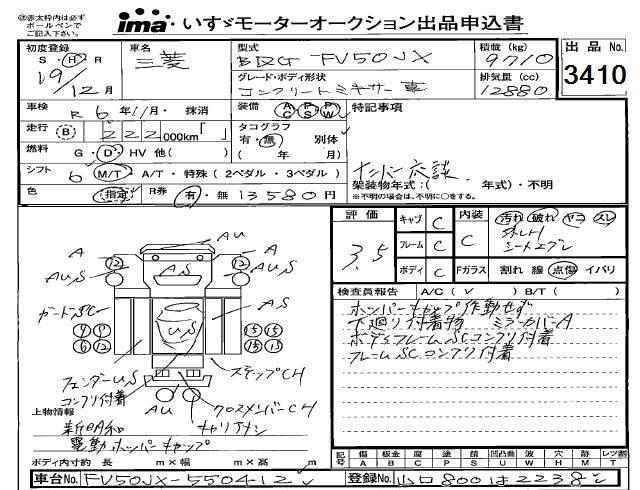 ㊟赤太枠内は必ず
ボールペンで
ご記入下さい。
ima いすゞモーターオークション出品申込書
初度登録 車名 型式 積載 (kg) 出品No.
S・H・R 三菱 BDG-FV50JX 9710 3410
19/12月 グレード・ボディ形状 排気量 (cc)
コンクリートミキサー車 12880
車検 R 6年11月・抹消 装備 AC PS PW 特記事項
走行 B 222,000km「 」 タコグラフ
有・無 別体
燃料 G・D・HV 他( ) ( 年 月) ナンバー応談
シフト 6 M/T・A/T・特殊(2ペダル・3ペダル) 架装物年式:( 年式)・不明
※不明の場合は、不明に○をする。
色 (指定) R券 有・無 13580円
評価 キャブ C 内装 汚れ 破れ ヤニ スレ
3.5 フレーム C C
シートコゲ
ボディ C Fガラス 割れ 線 点傷 イバリ
検査員報告 A/C( V ) B/T( )
ホッパーキャップ作動せず
下廻り付着物 ミラーカバーA
ボディフレームSCコンクリ付着
フレームSCコンクリ付着
AU
A A
12 12
AUS AS AUS
ガードSC AS
US
4 9 15 15
6 12 15 15
フェンダーUS ステップCH
コンクリ付着
AU クロスメンバーCH
キャリアナシ
上物情報
新明和
電動ホッパーキャップ
ボディ内寸約 長 m×幅 m×高 m
記号 傷 板金 腐 塗 錆 凹凸曲 波 穴 跡 レツ割
A B C P S U W H M T
車台No. FV50JX-550412 登録No. 山口800は2238